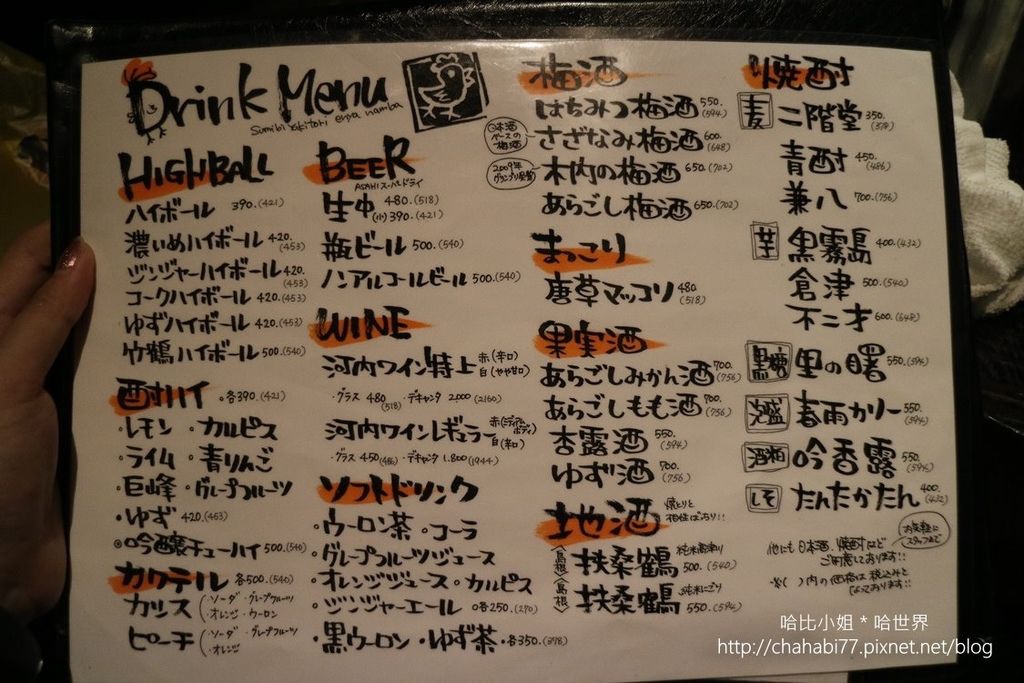 Drink Menu
Sumibi yakitori enya namba
HIGHBALL
ハイボール 390.(421)
濃いめハイボール 420.(453)
ジンジャーハイボール 420.(453)
コークハイボール 420.(453)
ゆずハイボール 420.(453)
竹鶴ハイボール 500.(540)
酎ハイ ・各390.(421)
・レモン ・カルピス
・ライム ・青りんご
・巨峰 ・グレープフルーツ
・ゆず 420.(453)
◎吟醸チューハイ 500.(540)
カクテル 各500.(540)
カシス (・ソーダ ・グレープフルーツ
・オレンジ ・ウーロン
ピーチ (・ソーダ ・グレープフルーツ
・オレンジ
BEER
ASAHI スーパードライ
生中 480.(518)
(小)390.(421)
瓶ビール 500.(540)
ノンアルコールビール 500.(540)
WINE
河内ワイン特上 赤(辛口)
白(やや甘口)
・グラス 480(518) ・デキャンタ 2,000(2160)
河内ワインレギュラー 赤(ミディアムボディ)
白(辛口)
・グラス 450(486) ・デキャンタ 1,800(1944)
ソフトドリンク
・ウーロン茶 ・コーラ
・グレープフルーツジュース
・オレンジジュース ・カルピス
・ジンジャーエール ・各250.(270)
・黒ウーロン ・ゆず茶 ・各350.(378)
梅酒
はちみつ梅酒 550.(594)
日本酒ベースの梅酒
さざなみ梅酒 600.(648)
2009年グランプリ受賞
木内の梅酒 650.(702)
あらごし梅酒 650.(702)
まっこり
唐草マッコリ 480(518)
果実酒
あらごしみかん酒 700.(756)
あらごしもも酒 700.(756)
杏露酒 550.(594)
ゆず酒 700.(756)
地酒 焼とりと相性ばっちり!!
(島根) 扶桑鶴 純米高津川 500.(540)
(島根) 扶桑鶴 純米にごり 550.(594)
焼酎
麦 二階堂 350.(378)
青酎 450.(486)
兼八 700.(756)
芋 黒霧島 400.(432)
倉津 500.(540)
不二才 600.(648)
黒糖 里の曙 550.(594)
泡盛 春雨カリー 550.(594)
酒粕 吟香露 550.(594)
しそ たんたかたん 400.(432)
お気軽にスタッフまで
他にも日本酒、焼酎など
ご用意しております!!
※( )内の価格は税込みと
なっております!!
哈比小姐 * 哈世界
http://chahabi77.pixnet.net/blog